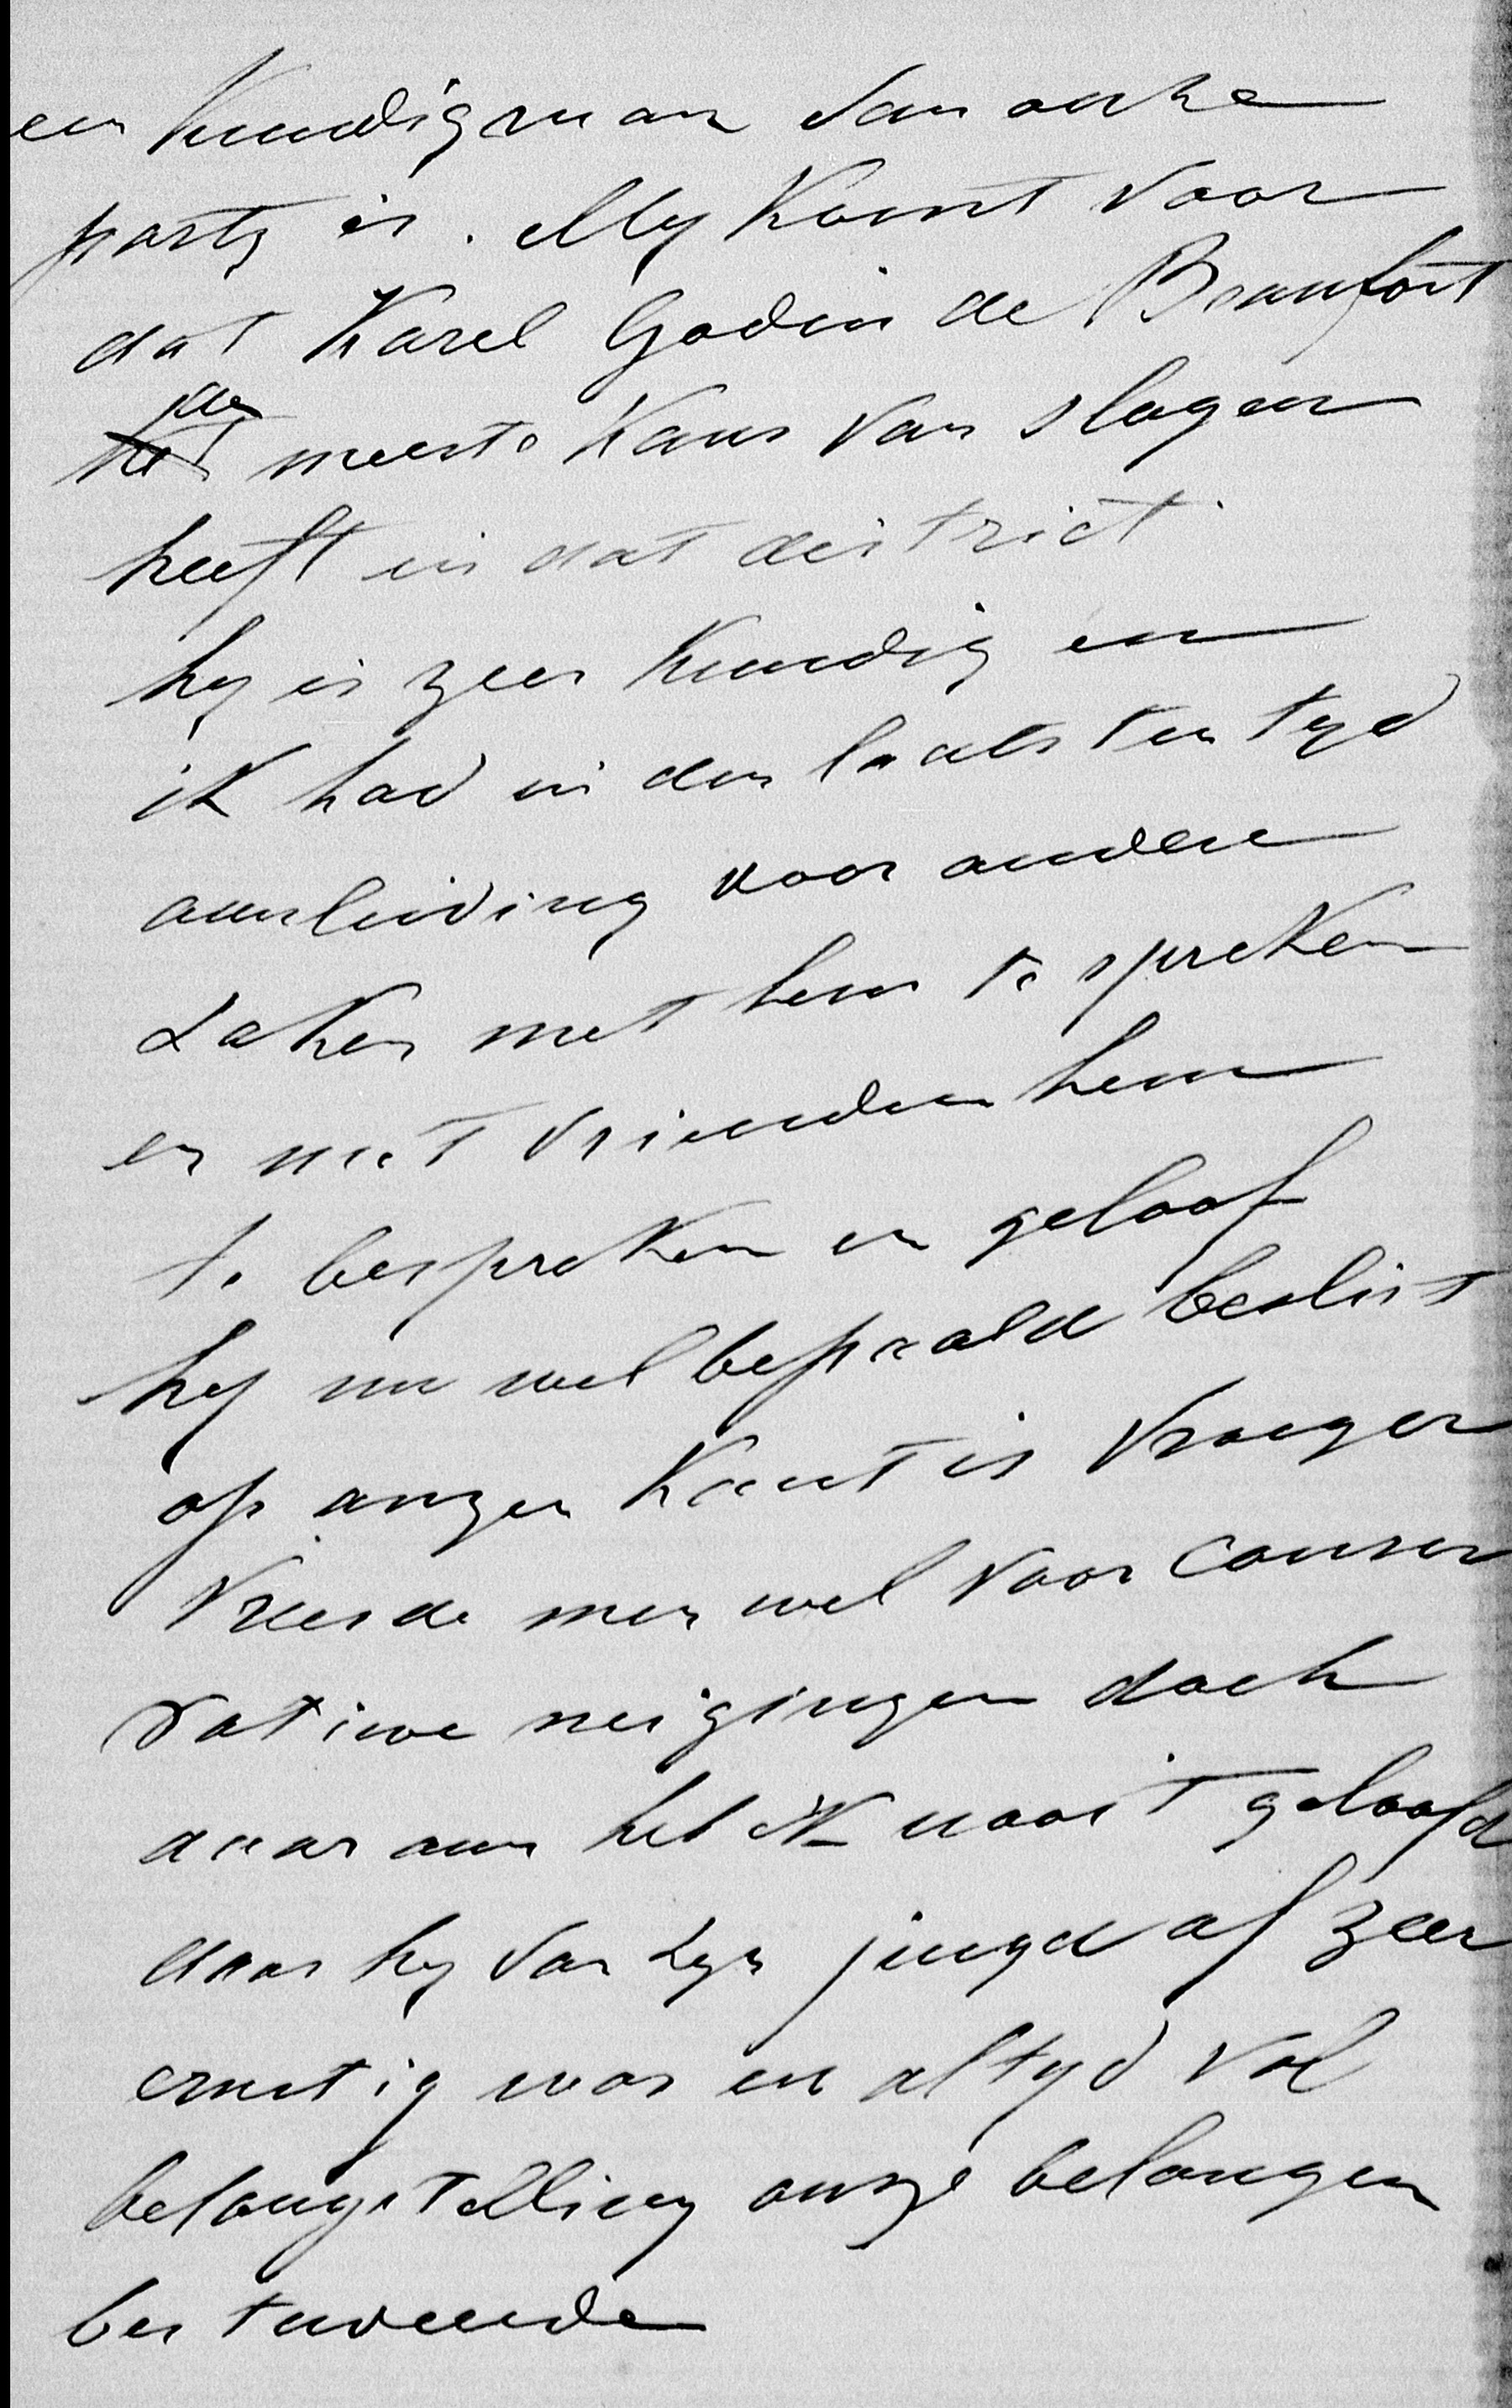 een kundig man van onze
party is. My komt voor
dat Karel Godin de Beaufort
de
het meeste kans van slagen
heeft in dat district.
hy is zeer kundig en
ik had in den laatsten tyd
aanleiding voor andere
zaken met hem te spreken
en met vrienden hem
te bespreken en geloof
hy nu wel bepaald beslist
op onzen kant is vroeger
vreesde men wel voor conser
vatieve neigingen doch
daar aan heb ik nooit geloofd
daar hy van zyn jeugd af zeer
ernstig was en altyd vol
belangstelling onze belangen
bestudeerde